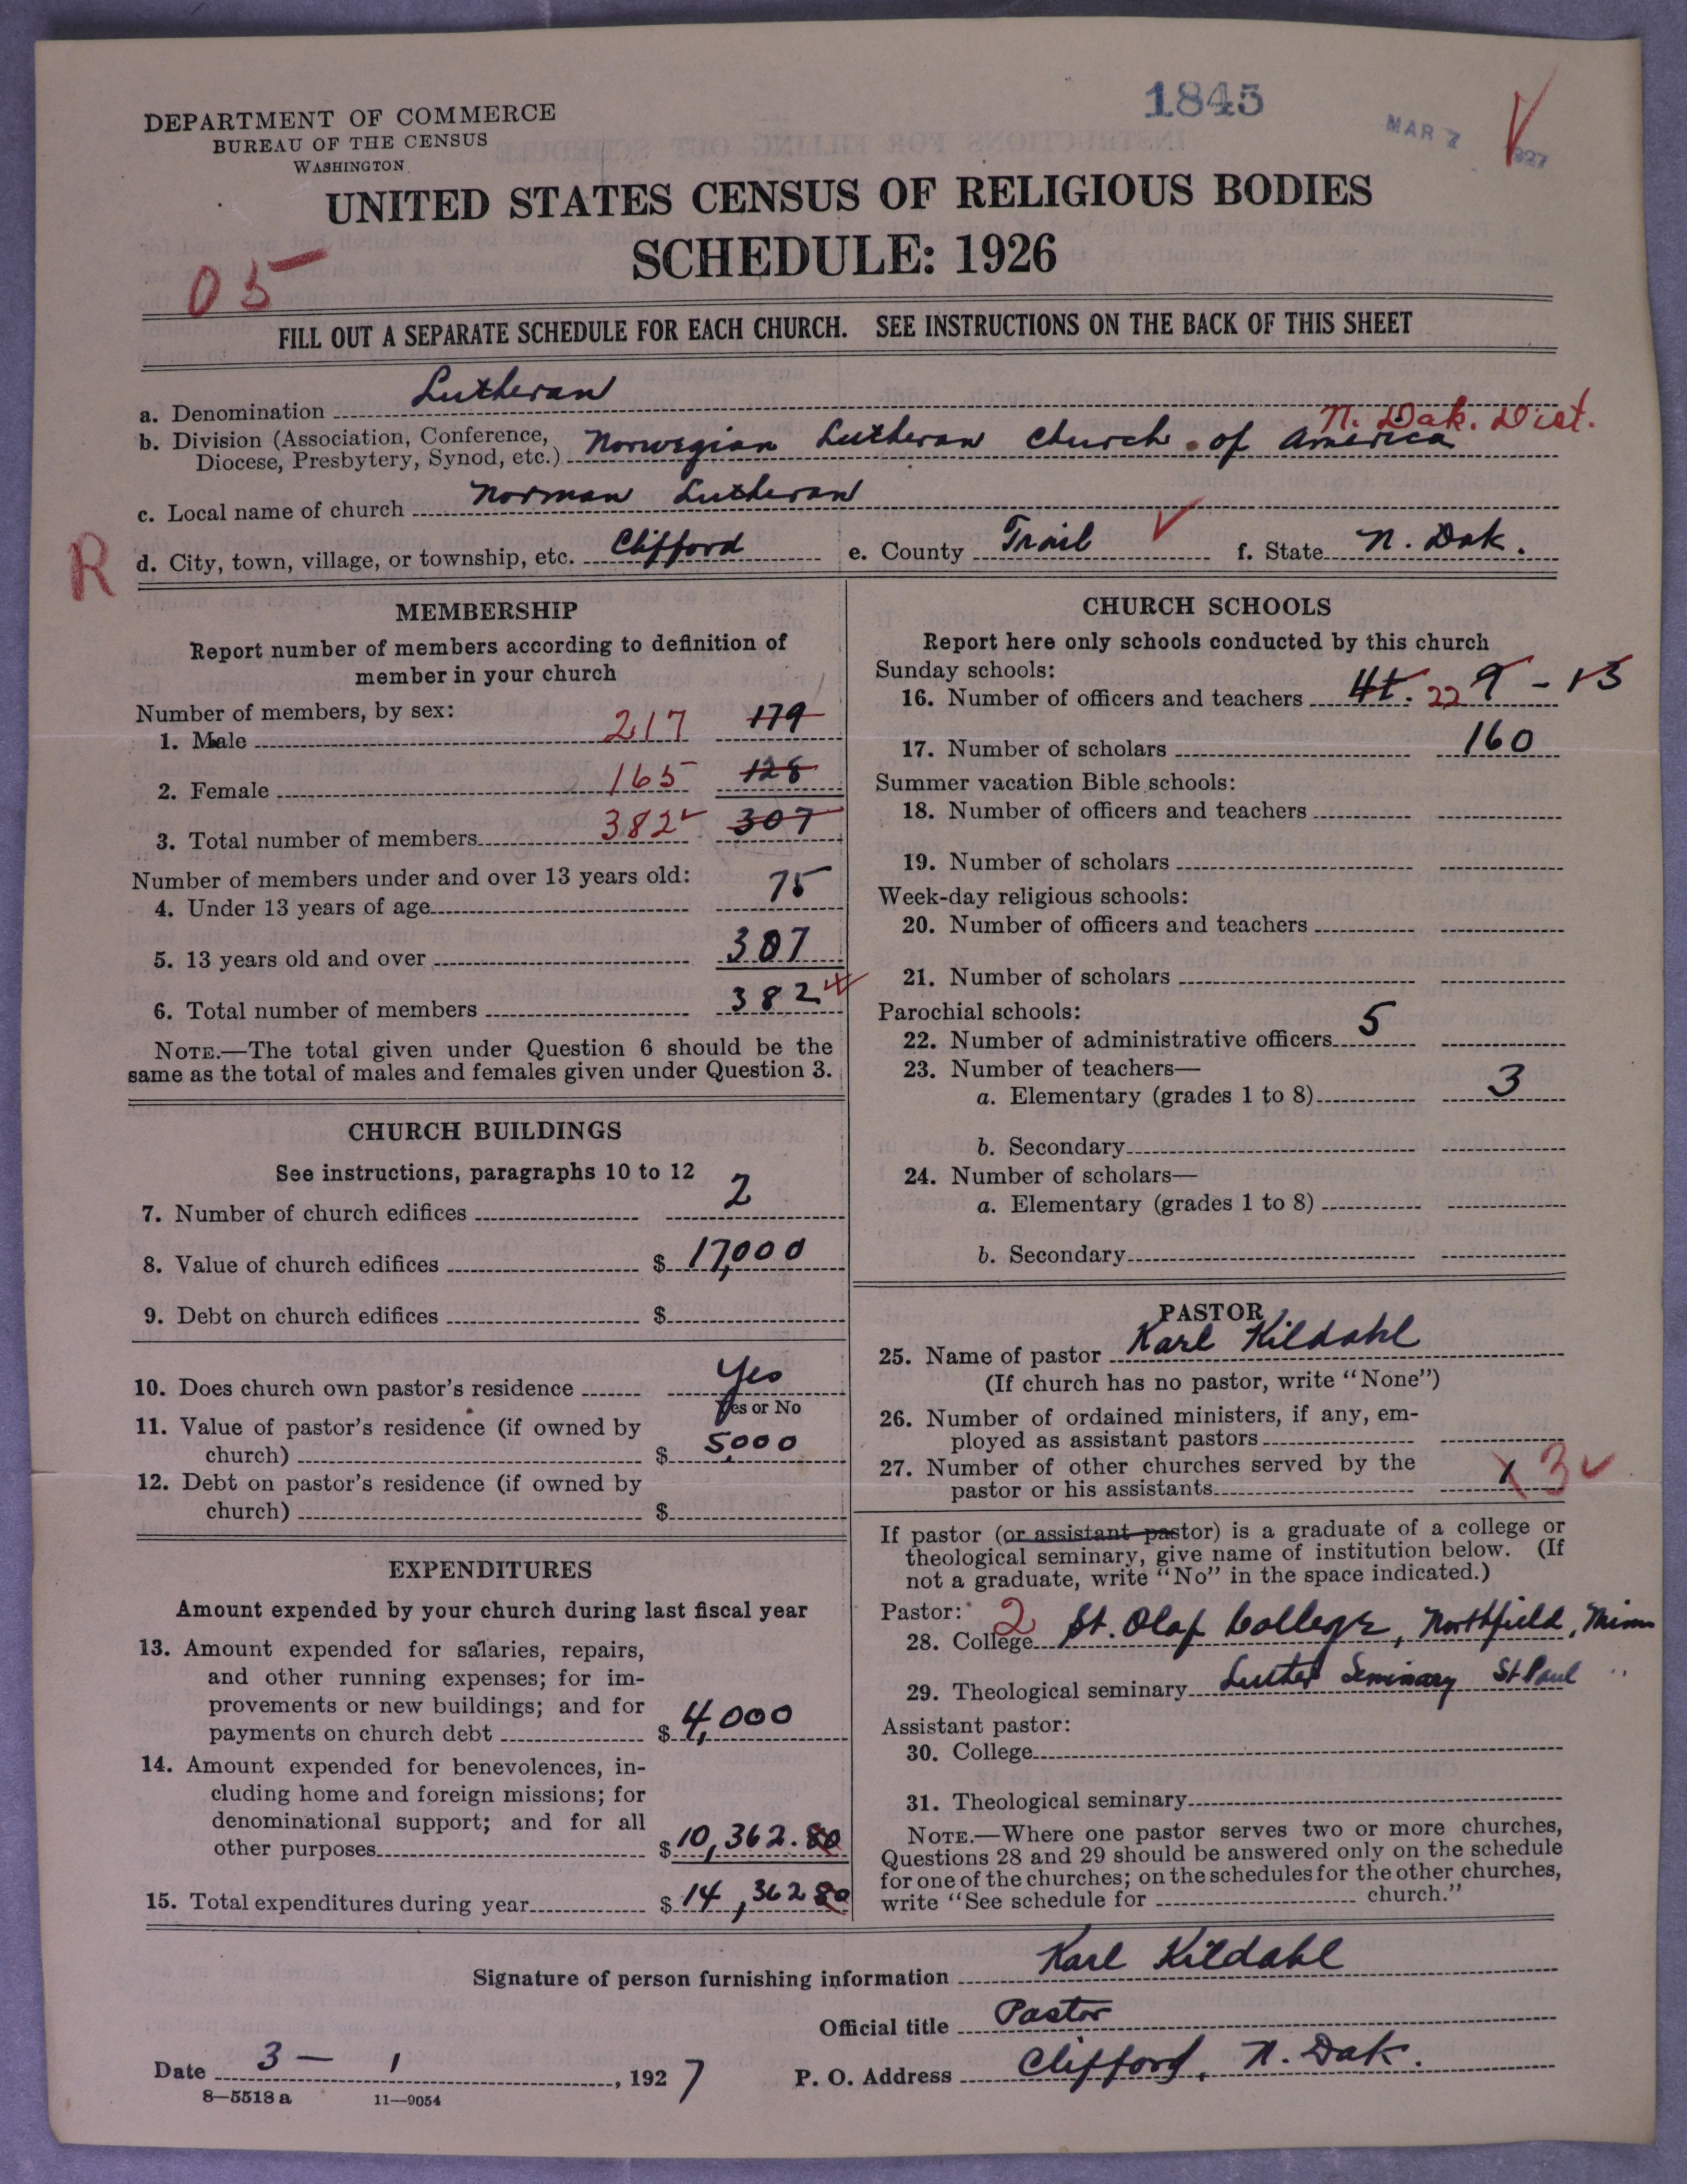 1845
MAR 7 1927
DEPARTMENT OF COMMERCE
BUREAU OF THE CENSUS
WASHINGTON
UNITED STATES CENSUS OF RELIGIOUS BODIES
SCHEDULE: 1926
05
FILL OUT A SEPARATE SCHEDULE FOR EACH CHURCH. SEE INSTRUCTIONS ON THE BACK OF THIS SHEET
a. Denomination Lutheran
N. Dak. Dist.
b. Division (Association, Conference, Diocese, Presbytery, Synod, etc.) Norwegian Lutheran Church of America
c. Local name of church Norman Lutheran
R
d. City, town, village, or township, etc. Clifford e. County Trail f. State N. Dak.
MEMBERSHIP
Report number of members according to definition of
member in your church
Number of members, by sex:
1. Male 217 179
2. Female 165 128
3. Total number of members 382 307
Number of members under and over 13 years old:
4. Under 13 years of age 75
5. 13 years old and over 307
6. Total number of members 382
NOTE.—The total given under Question 6 should be the
same as the total of males and females given under Question 3.
CHURCH BUILDINGS
See instructions, paragraphs 10 to 12
7. Number of church edifices 2
8. Value of church edifices $ 17,000
9. Debt on church edifices $
10. Does church own pastor's residence Yes
Yes or No
11. Value of pastor's residence (if owned by
church) $ 5000
12. Debt on pastor's residence (if owned by
church) $
EXPENDITURES
Amount expended by your church during last fiscal year
13. Amount expended for salaries, repairs,
and other running expenses; for im-
provements or new buildings; and for
payments on church debt $ 4,000
14. Amount expended for benevolences, in-
cluding home and foreign missions; for
denominational support; and for all
other purposes $ 10,362.80
15. Total expenditures during year $ 14,362 80
CHURCH SCHOOLS
Report here only schools conducted by this church
Sunday schools:
16. Number of officers and teachers 22 9 - 13
17. Number of scholars 160
Summer vacation Bible schools:
18. Number of officers and teachers
19. Number of scholars
Week-day religious schools:
20. Number of officers and teachers
21. Number of scholars
Parochial schools:
22. Number of administrative officers 5
23. Number of teachers—
a. Elementary (grades 1 to 8) 3
b. Secondary
24. Number of scholars—
a. Elementary (grades 1 to 8)
b. Secondary
PASTOR
25. Name of pastor Karl Kildahl
(If church has no pastor, write "None")
26. Number of ordained ministers, if any, em-
ployed as assistant pastors
27. Number of other churches served by the
pastor or his assistants 3
If pastor (or assistant pastor) is a graduate of a college or
theological seminary, give name of institution below. (If
not a graduate, write "No" in the space indicated.)
Pastor: 2
28. College St. Olaf College, Northfield, Minn
29. Theological seminary Luther Seminary St Paul "
Assistant pastor:
30. College
31. Theological seminary
NOTE.—Where one pastor serves two or more churches,
Questions 28 and 29 should be answered only on the schedule
for one of the churches; on the schedules for the other churches,
write "See schedule for church."
Signature of person furnishing information Karl Kildahl
Official title Pastor
Date 3 - 1, 1927 P. O. Address Clifford, N. Dak.
8—5518 a 11—9054